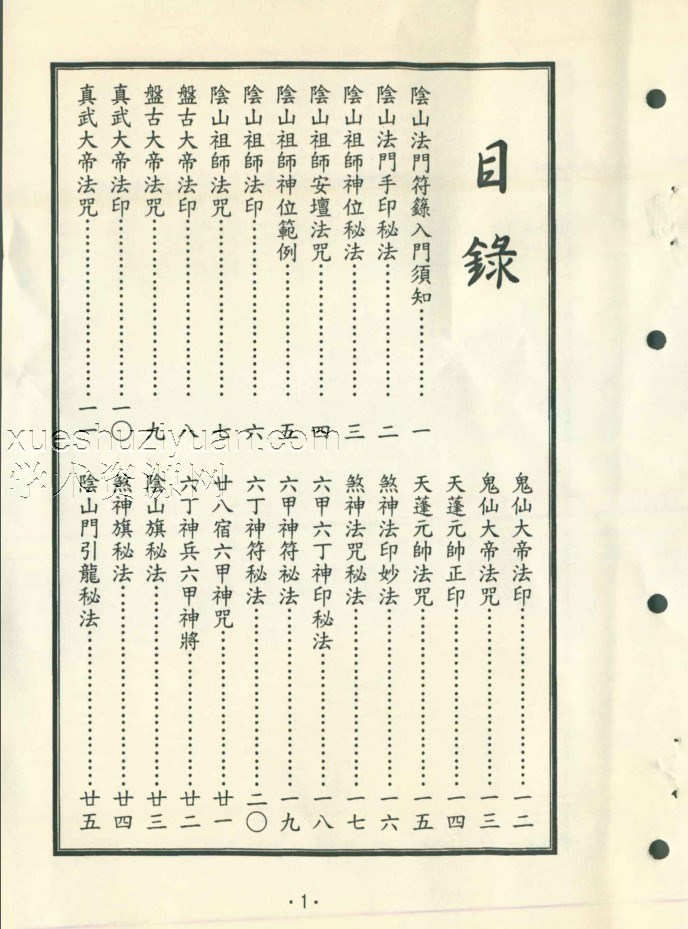 目錄
陰山法門符籙入門須知……一
陰山法門手印秘法……二
陰山祖師神位秘法……三
陰山祖師安壇法咒……四
陰山祖師神位範例……五
陰山祖師法印……六
陰山祖師法咒……七
盤古大帝法印……八
盤古大帝法咒……九
真武大帝法印……一〇
真武大帝法咒……一一
鬼仙大帝法印……一二
鬼仙大帝法咒……一三
天蓬元帥正印……一四
天蓬元帥法咒……一五
煞神法印妙法……一六
煞神法咒秘法……一七
六甲六丁神印秘法……一八
六甲神符秘法……一九
六丁神符秘法……二〇
廿八宿六甲神咒……廿一
六丁神兵六甲神將……廿二
陰山旗秘法……廿三
煞神旗秘法……廿四
陰山門引龍秘法……廿五
·1·
xueshuziyuan.com
学术资源网